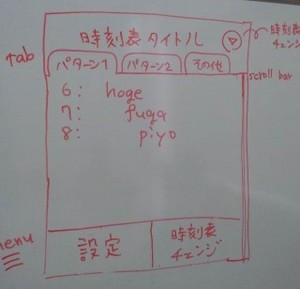 時刻表タイトル
時刻表
チェンジ
tab
パターン1
パターン2
その他
scroll bar
6: hoge
7: fuga
8: piyo
menu
設定
時刻表
チェンジ